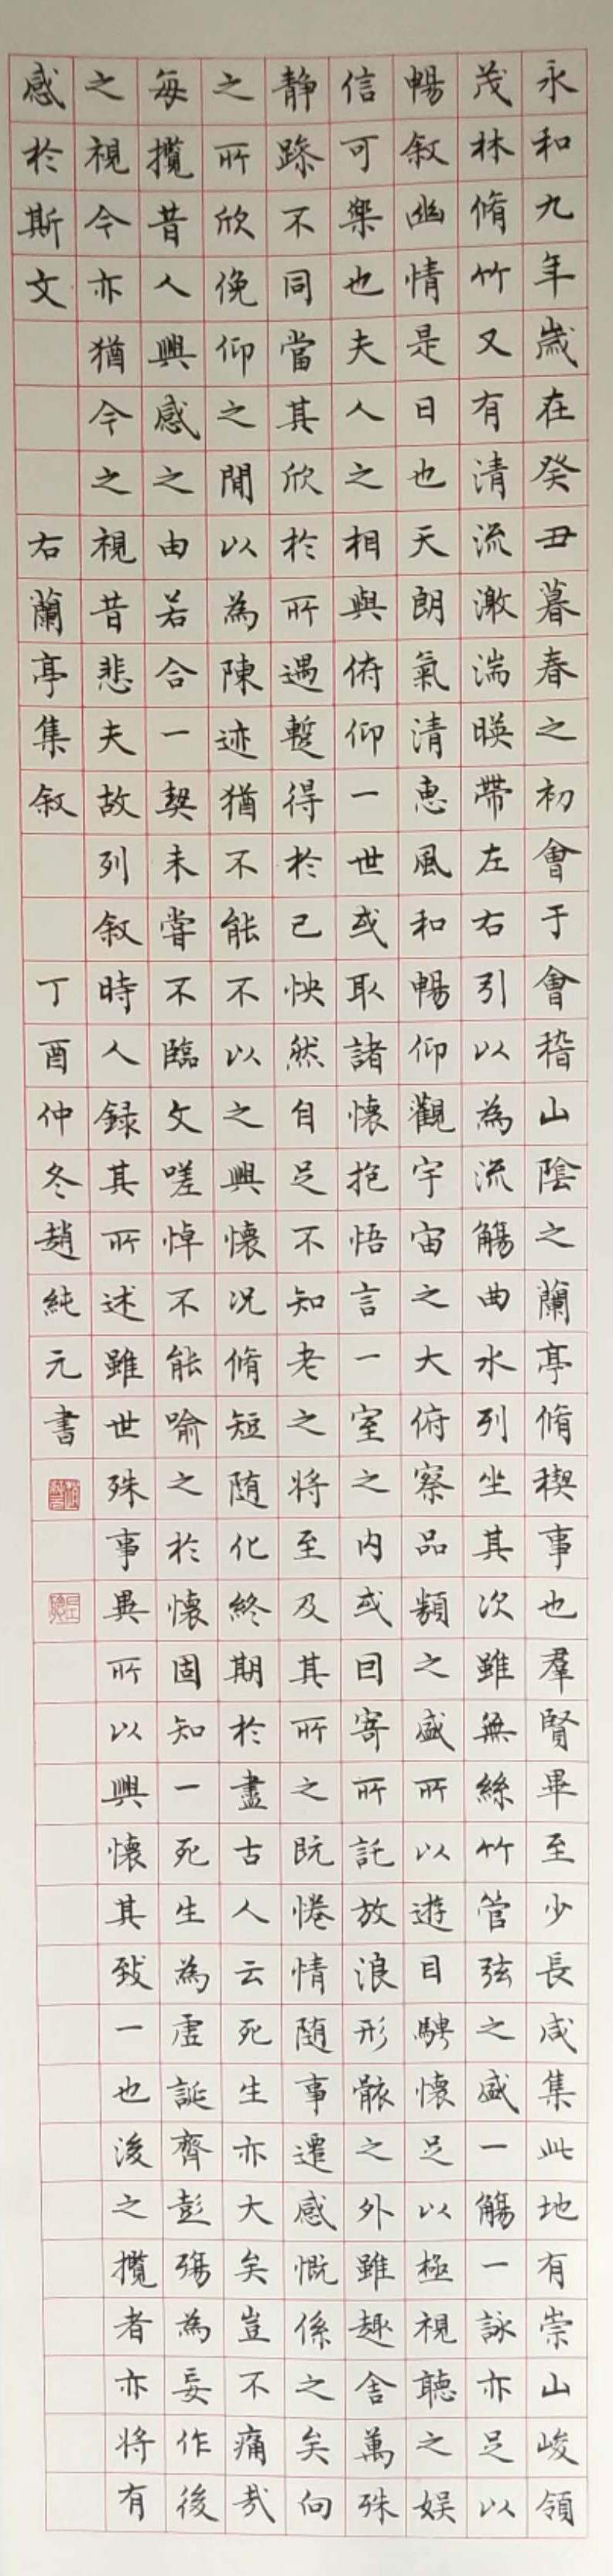 永和九年歲在癸丑暮春之初會于會稽山陰之蘭亭脩禊事也羣賢畢至少長咸集此地有崇山峻領
茂林脩竹又有清流激湍暎帶左右引以為流觴曲水列坐其次雖無絲竹管弦之盛一觴一詠亦足以
暢叙幽情是日也天朗氣清惠風和暢仰觀宇宙之大俯察品類之盛所以遊目騁懷足以極視聽之娱
信可樂也夫人之相與俯仰一世或取諸懷抱悟言一室之内或因寄所託放浪形骸之外雖趣舍萬殊
静躁不同當其欣於所遇暫得於己怏然自足不知老之将至及其所之既惓情随事遷感慨係之矣向
之所欣俛仰之閒以為陳迹猶不能不以之興懷况脩短随化終期於盡古人云死生亦大矣豈不痛哉
每攬昔人興感之由若合一契未嘗不臨文嗟悼不能喻之於懷固知一死生為虛誕齊彭殤為妄作後
之視今亦猶今之視昔悲夫故列叙時人録其所述雖世殊事異所以興懷其致一也後之攬者亦将有
感於斯文 右蘭亭集叙 丁酉仲冬趙純元書